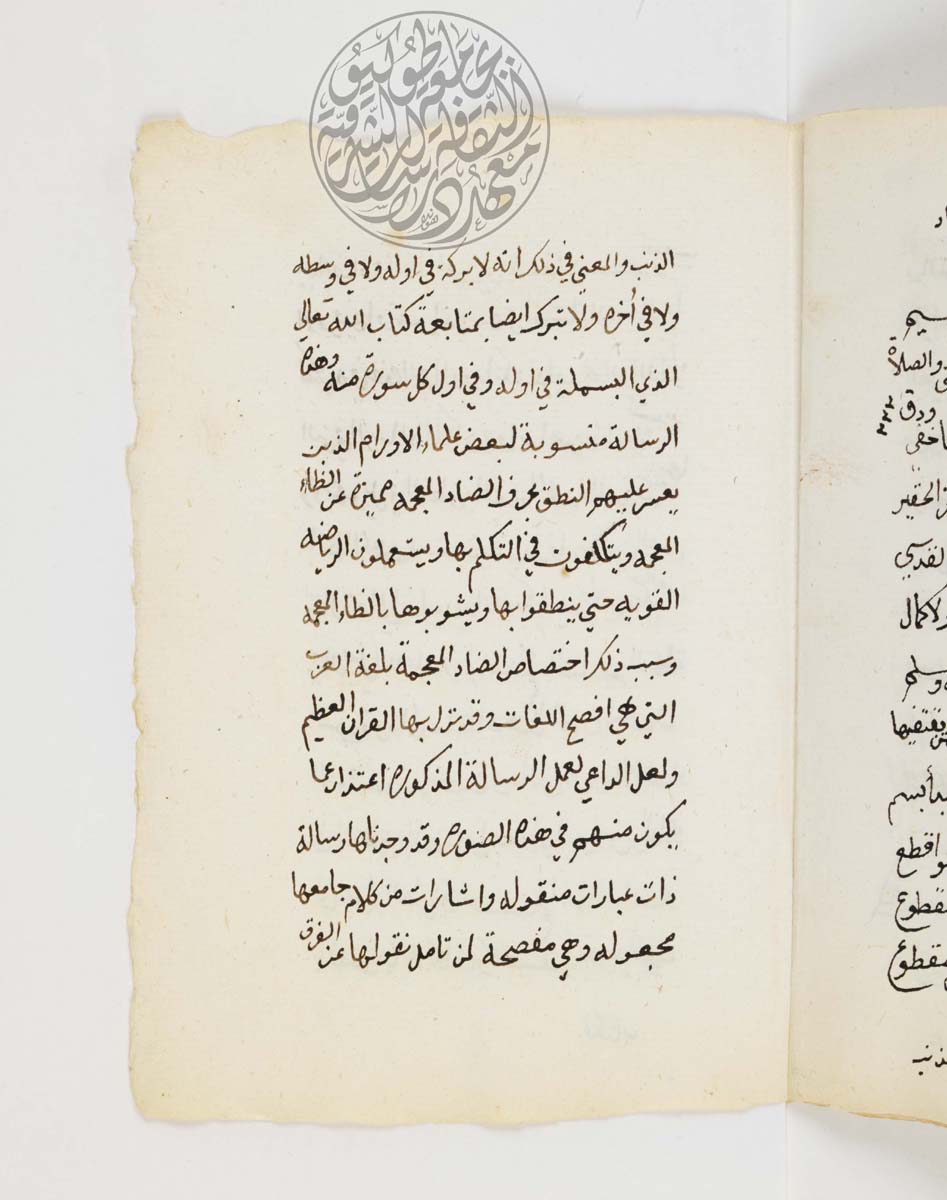 الذنب والمعني في ذلك انه لا بركة في اوله ولا في وسطه
ولا في اُخره ولا تبرك ايضا بمتابعة كتاب الله تعالي
الذي البسملة في اوله وفي اول كل سورة منه وهذه
الرسالة منسوبة لبعض علماء الاورام الذين
يعسر عليهم النطق بحرف الضاد المعجمه مميزة عن الظاء
المعجمه ويتكلفون في التكلم بها ويستعملون الرياضه
القويه حتي ينطقوا بها ويشوبوها بالظاء المعجمه
وسبب ذلك اختصاص الضاد المعجمة بلغة العرب
التي هي افصح اللغات وقد نزل بها القران العظيم
ولعل الداعي لعمل الرسالة المذكوره اعتذار عما
يكون منهم في هذه الصوره وقد وجدناها رسالة
ذات عبارات منقوله واشارات من كلام جامعها
مجعوله وهي مفصحة لمن تامل نقولها عن الفرق
سيم
والصلاة
ودق
اخفى
الحقير
القدسي
وسلم
يقتفيها
بدأ بسم
اقطع
مقطوع
مقطوع
الذنب